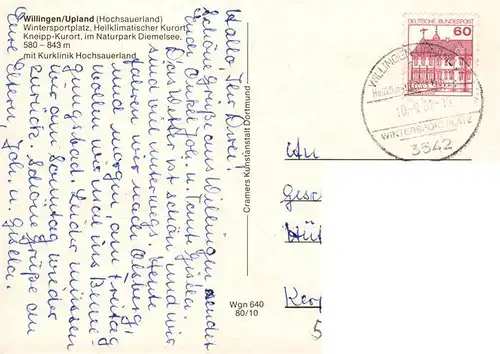 Willingen/Upland (Hochsauerland)
Wintersportplatz, Heilklimatischer Kurort
Kneipp-Kurort, im Naturpark Diemelsee,
580 – 843 m
mit Kurklinik Hochsauerland
Hallo, Ihr Drei!
Schöne Grüße aus Willingen sendet
Euch Onkel Joh. u. Tante Gisela.
Das Wetter ist schön und wir
sind viel unterwegs. Heute
fahren wir nach Olsberg,
und morgen, am Freitag
wollen wir ins
Leider müssen
wir am Sonntag wieder
zurück. Schöne Grüße an
Eure Eltern, Joh. u.
Gisela.
Cramers Kunstanstalt Dortmund
Wgn 640
80/10
DEUTSCHE BUNDESPOST
60
WILLINGEN
WINTERSPORTPLATZ
3542
An
Gesc
Hüt
Kerp
5